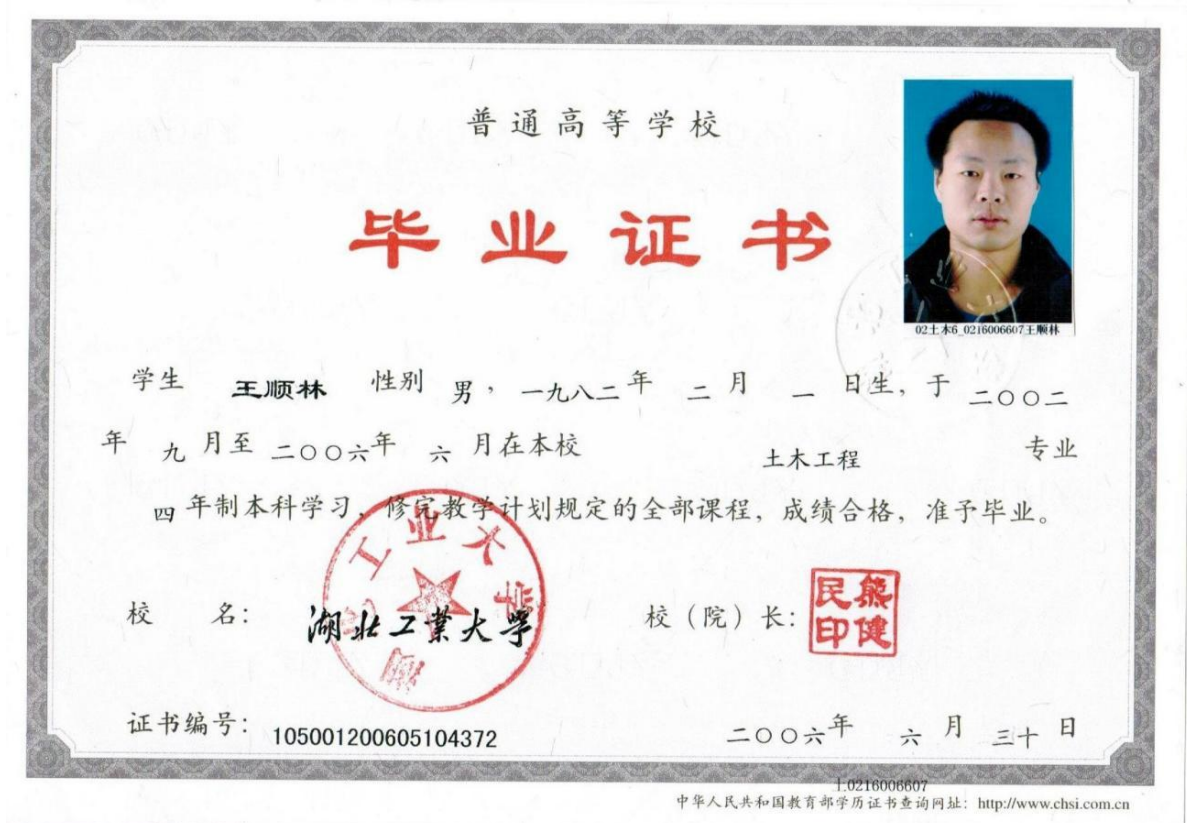 普通高等学校
毕业证书
02土木6_0216006607王顺林
学生 王顺林 性别 男，一九八二年 二月 一 日生，于 二〇〇二
年 九月至 二〇〇六年 六月在本校 土木工程 专业
四年制本科学习，修完教学计划规定的全部课程，成绩合格，准予毕业。
湖北工业大学
校 名： 湖北工業大學 校（院）长： 熊健民印
证书编号： 105001200605104372 二〇〇六年 六月 三十日
土0216006607
中华人民共和国教育部学历证书查询网址：http://www.chsi.com.cn